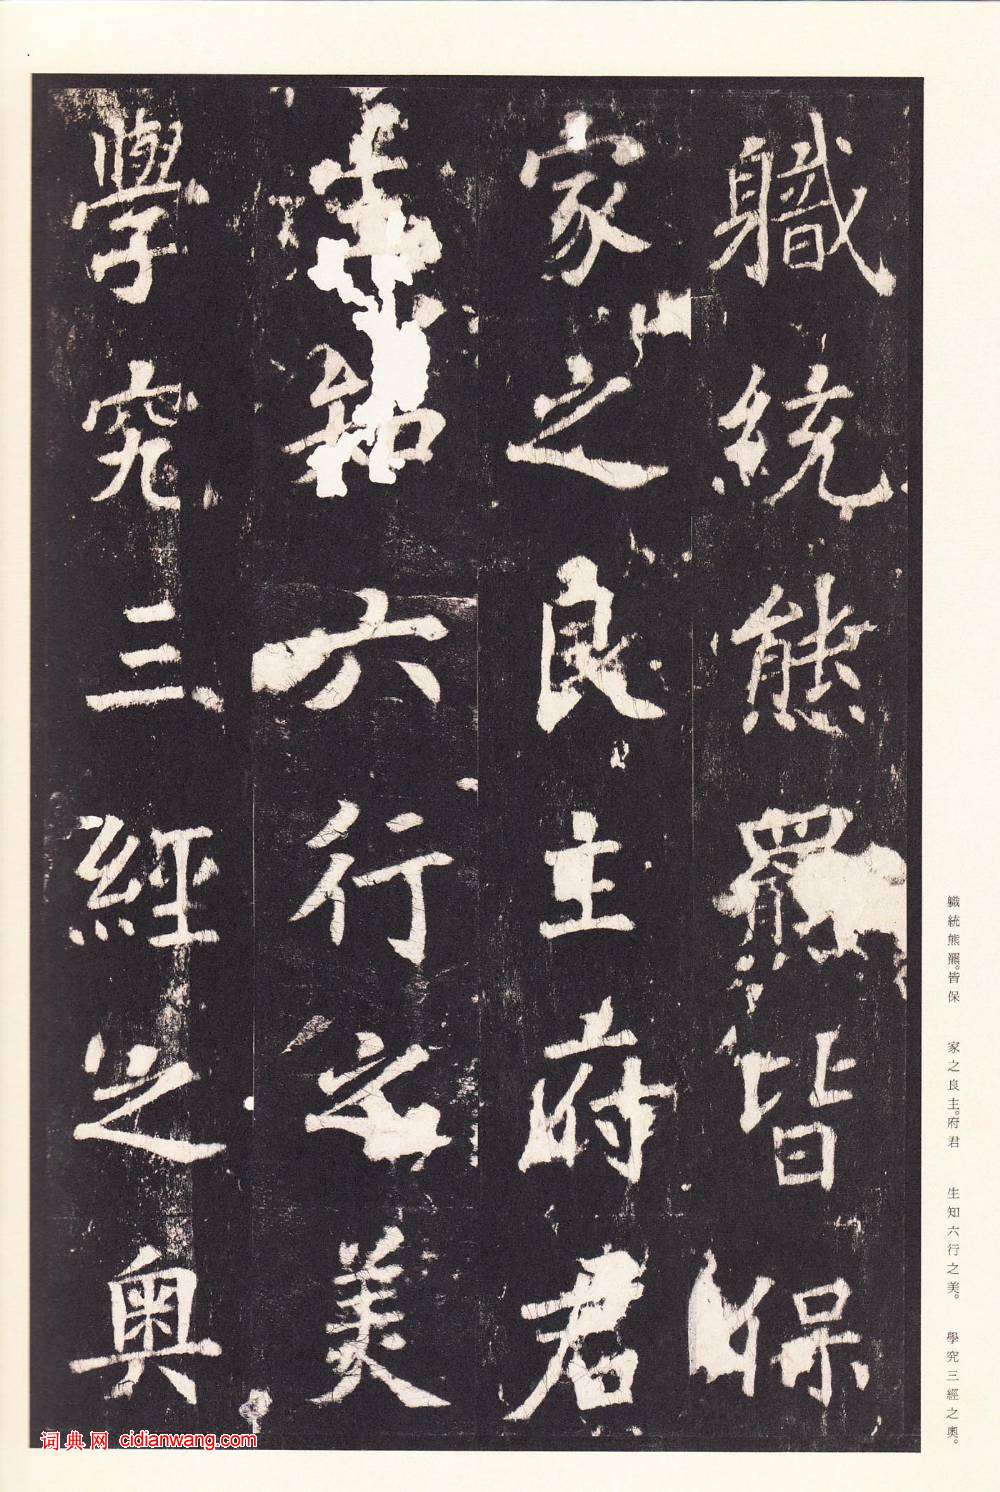 軄統熊羆皆保
家之良主府君
生知六行之美
學究三經之奧
軄統熊羆。皆保　家之良主。府君　生知六行之美。　學究三經之奧。
词典网 cidianwang.com